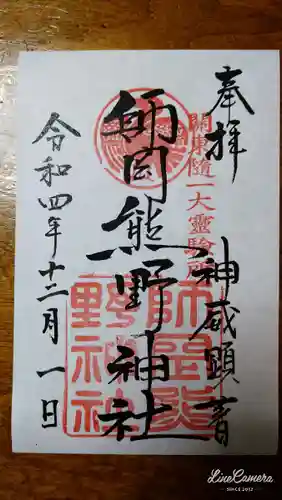 奉拝
關東随一大霊験所
神威顕著
師岡熊野神社
師岡熊
野神社
令和四年十二月一日
LineCamera
SINCE 2012